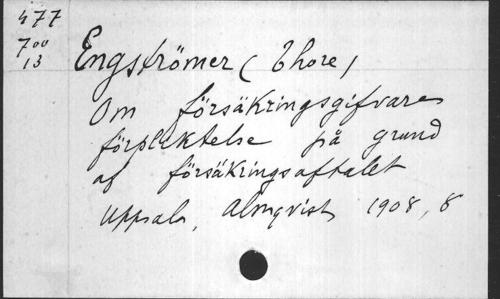 477
700
13
Engströmer (Thore)
Om försäkringsgifvares
förpliktelse på grund
af försäkringsaftalet
Uppsala, Almqvist, 1908, 8